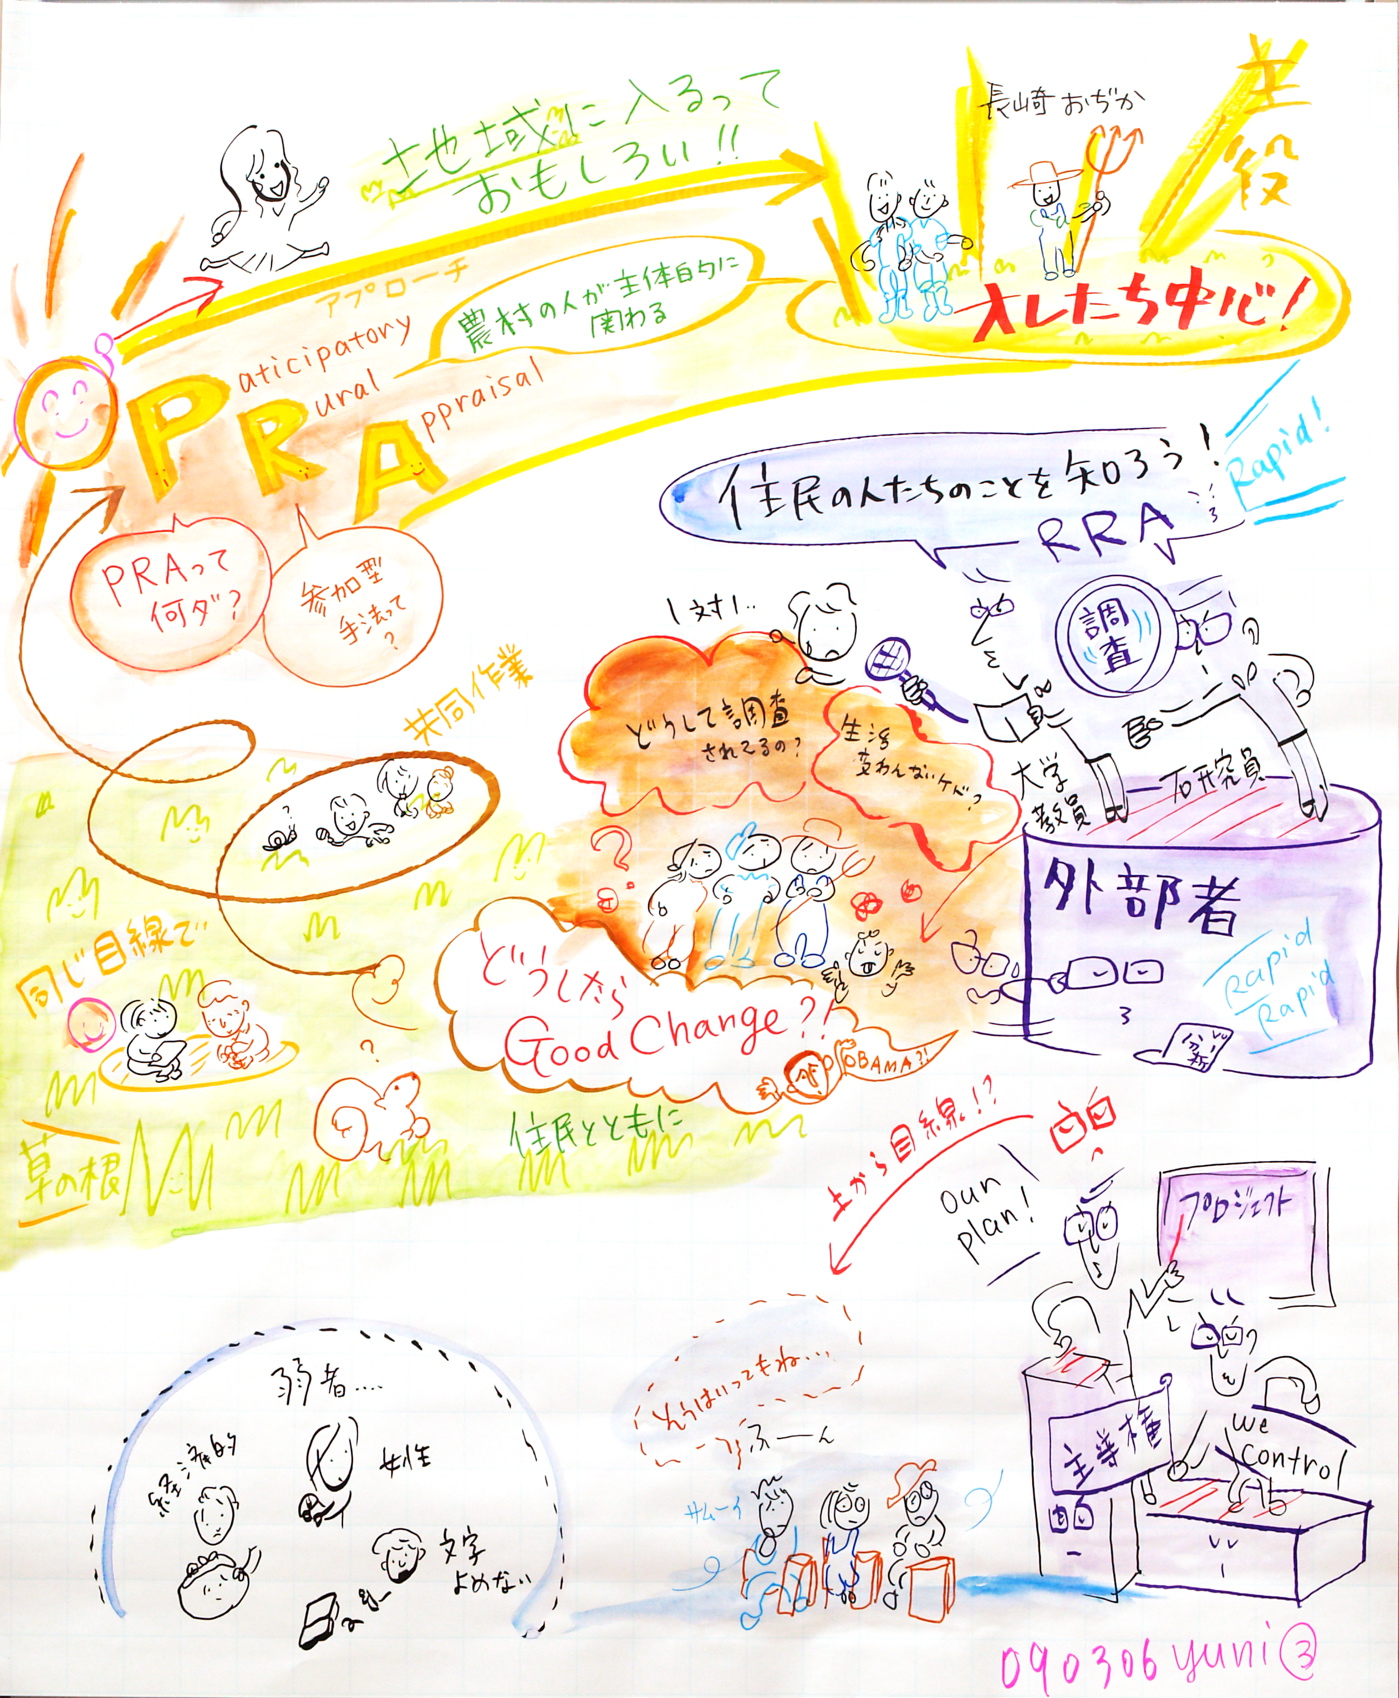 地域に入るって
おもしろい!!
長崎 おぢか
主役
アプローチ
農村の人が主体的に
関わる
入レたち中心!
Paticipatory
Rural
Appraisal
PRAって
何ダ?
参加型
手法って
?
住民の人たちのことを知ろう!
RRA
Rapid!
1対1..
調査
どうして調査
されてるの?
生活
変わんないケドっ
大学
教員
研究員
外部者
Rapid
Rapid
分析
共同作業
同じ目線で
どうしたら
Good Change?!
OBAMA?!
住民とともに
草の根
上から目線!?
our
plan!
プロジェクト
主導権
we
control
そうはいってもね...
ふーん
サムーイ
弱者....
経済的
女性
文字
よめない
090306 yuni③